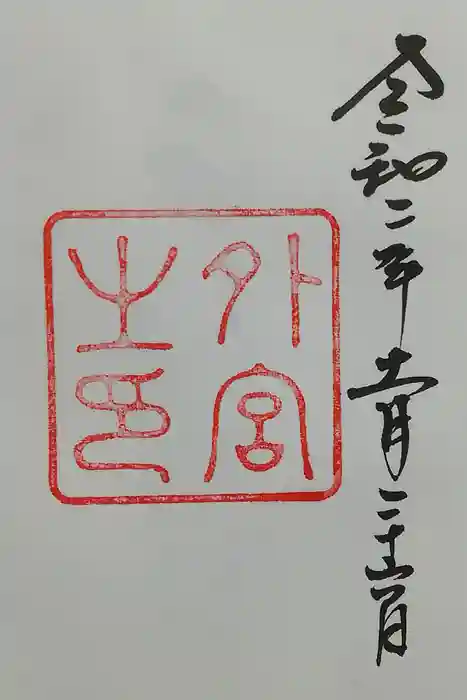 令和二年十一月二十一日
外宮
之印